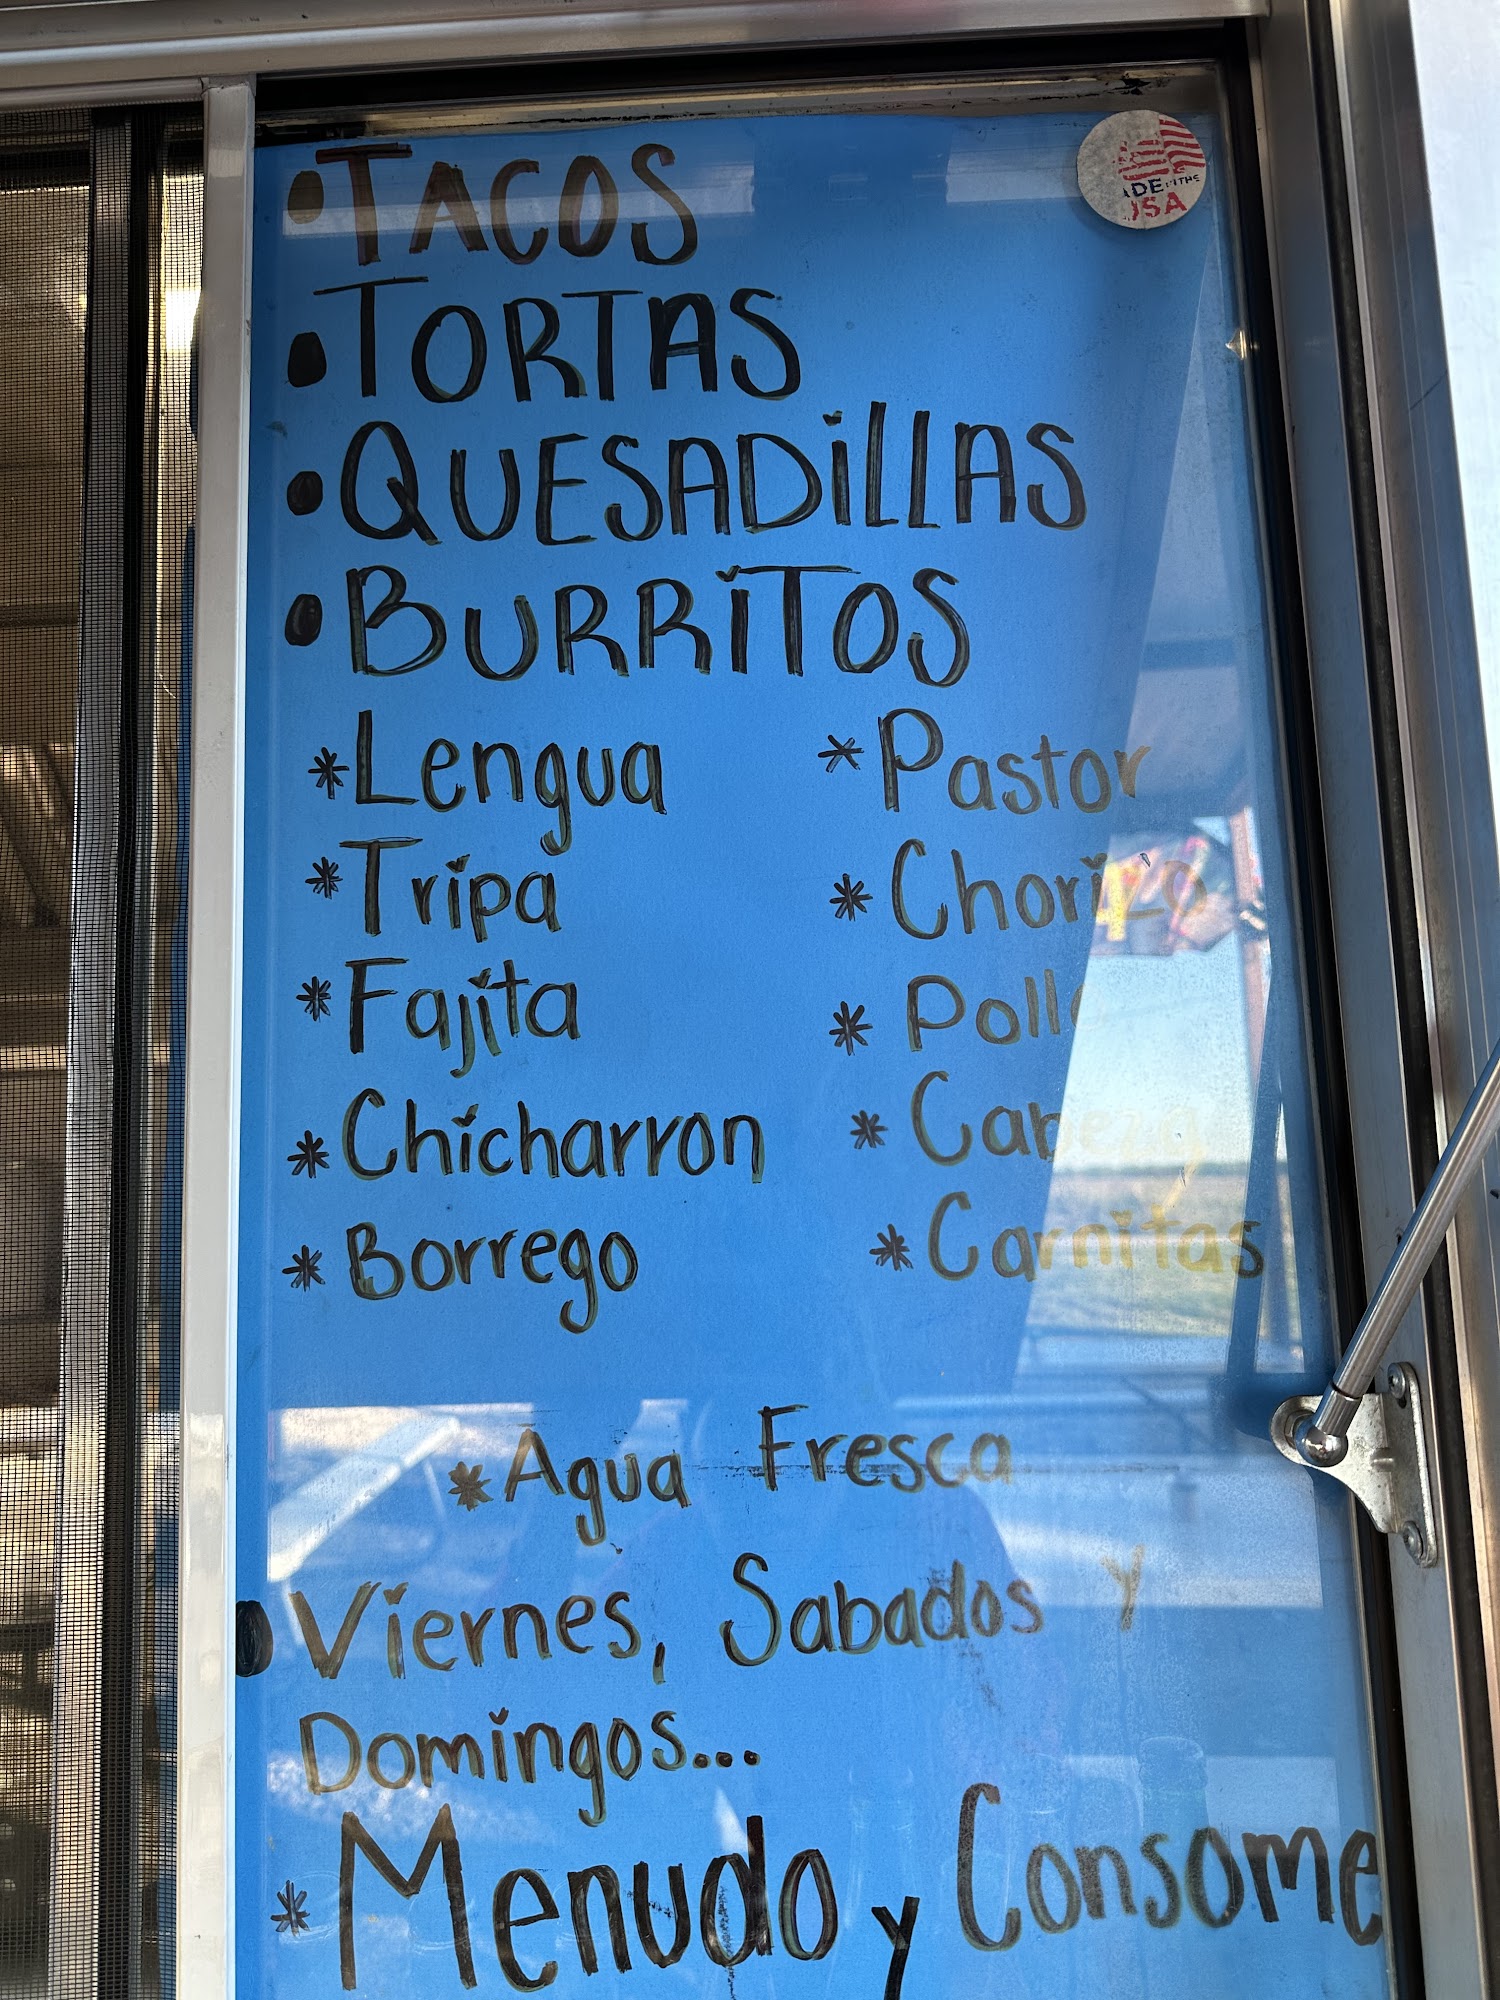 • TACOS
• TORTAS
• QUESADiLLAS
• BURRiTOS
* Lengua
* Tripa
* Fajita
* Chicharron
* Borrego
* Pastor
* Chorizo
* Pollo
* Cabeza
* Carnitas
* Agua Fresca
• Viernes, Sabados y
Domingos...
* Menudo y Consome
ADE IN THE
USA